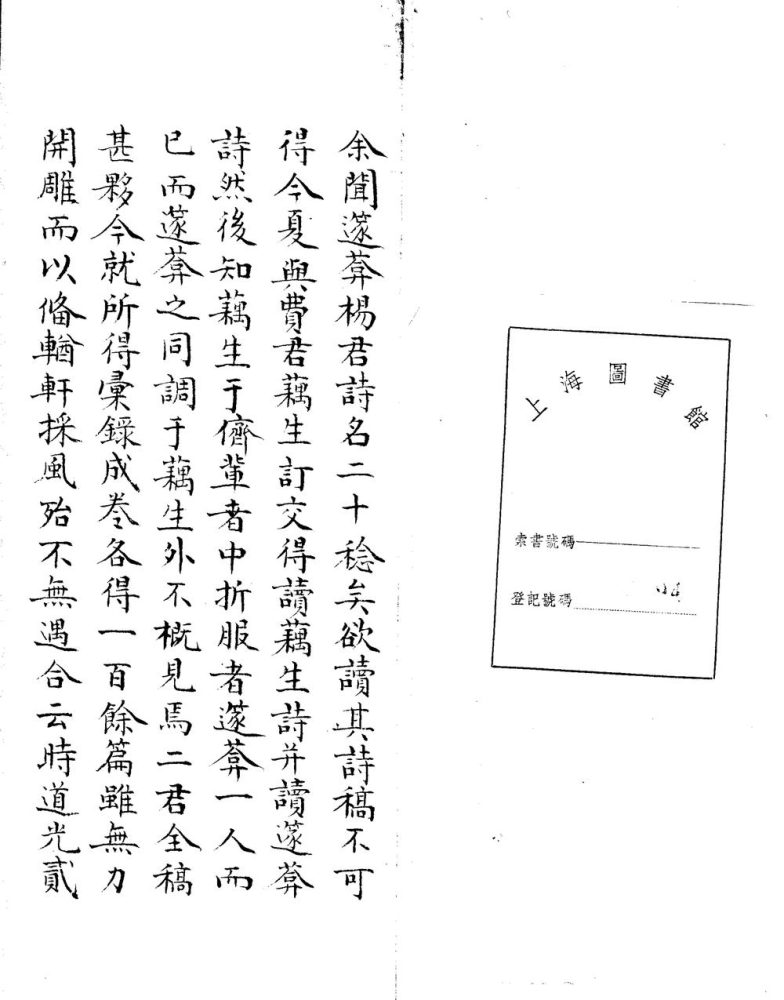 上海圖書館
索書號碼
登記號碼
余聞蓫葊楊君詩名二十稔矣欲讀其詩稿不可
得今夏與費君藕生訂交得讀藕生詩并讀蓫葊
詩然後知藕生于儕輩者中折服者蓫葊一人而
已而蓫葊之同調于藕生外不概見焉二君全稿
甚夥今就所得彙錄成卷各得一百餘篇雖無力
開雕而以俻輶軒採風殆不無遇合云時道光貳